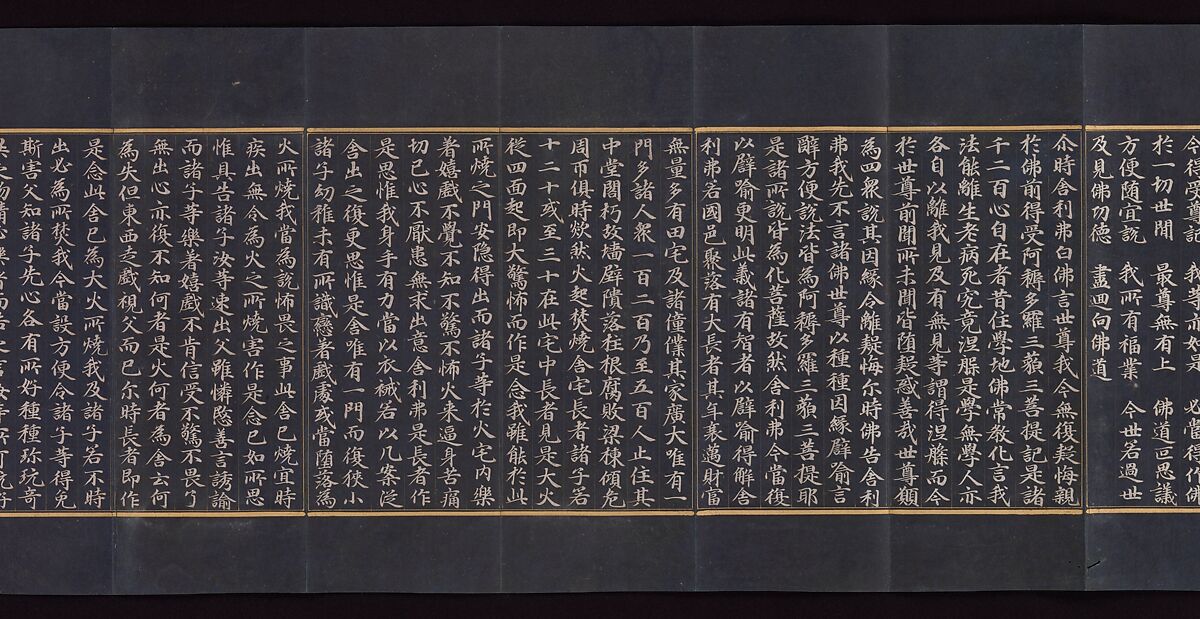 於一切世間　最尊無有上　佛道叵思議
方便随宜說　我所有福業　今世若過世
及見佛功德　盡迴向佛道
尒時舍利弗白佛言世尊我今無復疑悔親
於佛前得受阿耨多羅三藐三菩提記是諸
千二百心自在者昔住學地佛常教化言我
法能離生老病死究竟涅槃是學無學人亦
各自以離我見及有無見等謂得涅槃而今
於世尊前聞所未聞皆堕疑惑善哉世尊願
為四衆說其因緣令離疑悔尒時佛告舍利
弗我先不言諸佛世尊以種種因緣譬喻言
辭方便說法皆為阿耨多羅三藐三菩提耶
是諸所說皆為化菩薩故然舍利弗今當復
以譬喻更明此義諸有智者以譬喻得解舍
利弗若國邑聚落有大長者其年衰邁財富
無量多有田宅及諸僮僕其家廣大唯有一
門多諸人衆一百二百乃至五百人止住其
中堂閣朽故墻壁隤落柱根腐敗梁棟傾危
周帀俱時欻然火起焚燒舍宅長者諸子若
十二十或至三十在此宅中長者見是大火
從四面起即大驚怖而作是念我雖能於此
所燒之門安隱得出而諸子等於火宅內樂
著嬉戲不覺不知不驚不怖火來逼身苦痛
切已心不厭患無求出意舍利弗是長者作
是思惟我身手有力當以衣裓若以几案從
舍出之復更思惟是舍唯有一門而復狹小
諸子幼稚未有所識戀著戲處或當墮落為
火所燒我當為說怖畏之事此舍已燒宜時
疾出無令為火之所燒害作是念已如所思
惟具告諸子汝等速出父雖憐愍善言誘諭
而諸子等樂著嬉戲不肯信受不驚不畏了
無出心亦復不知何者是火何者為舍云何
為失但東西走戲視父而已尒時長者即作
是念此舍已為大火所燒我及諸子若不時
出必為所焚我今當設方便令諸子等得免
斯害父知諸子先心各有所好種種珍玩奇